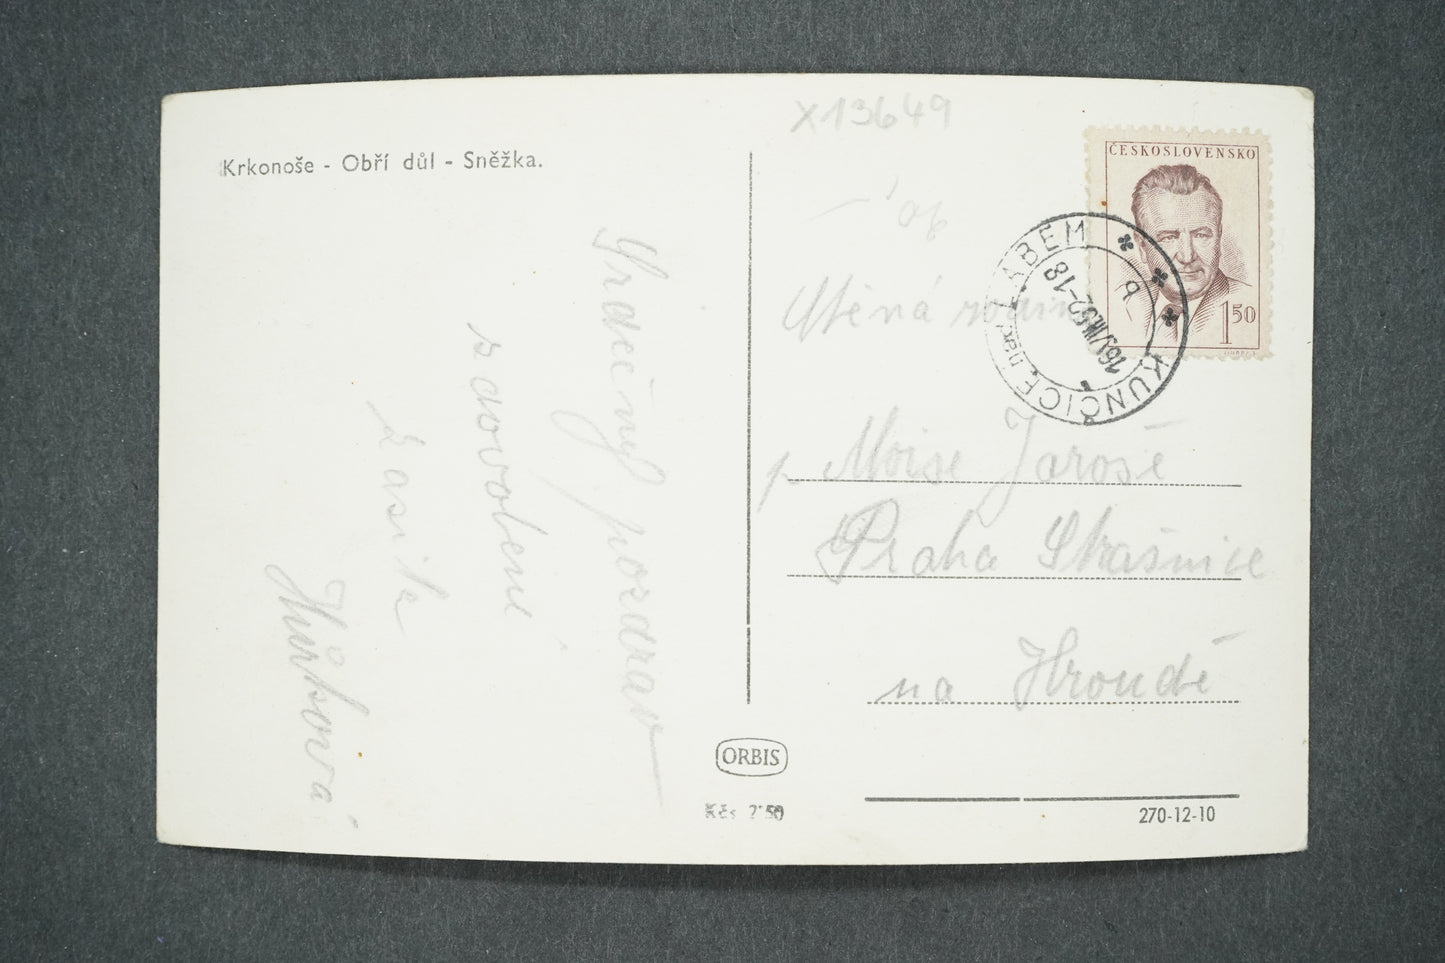 X13649
Krkonoše - Obří důl - Sněžka.
ČESKOSLOVENSKO
1 50
KUNČICE nad LABEM
16.VIII.52-18
Srdečný pozdrav
z dovolené
Zasílá
Hůrková
Ctěná rodina
p Moise Jaroše
Praha Strašnice
na Hroudě
ORBIS
Kčs 2·50
270-12-10